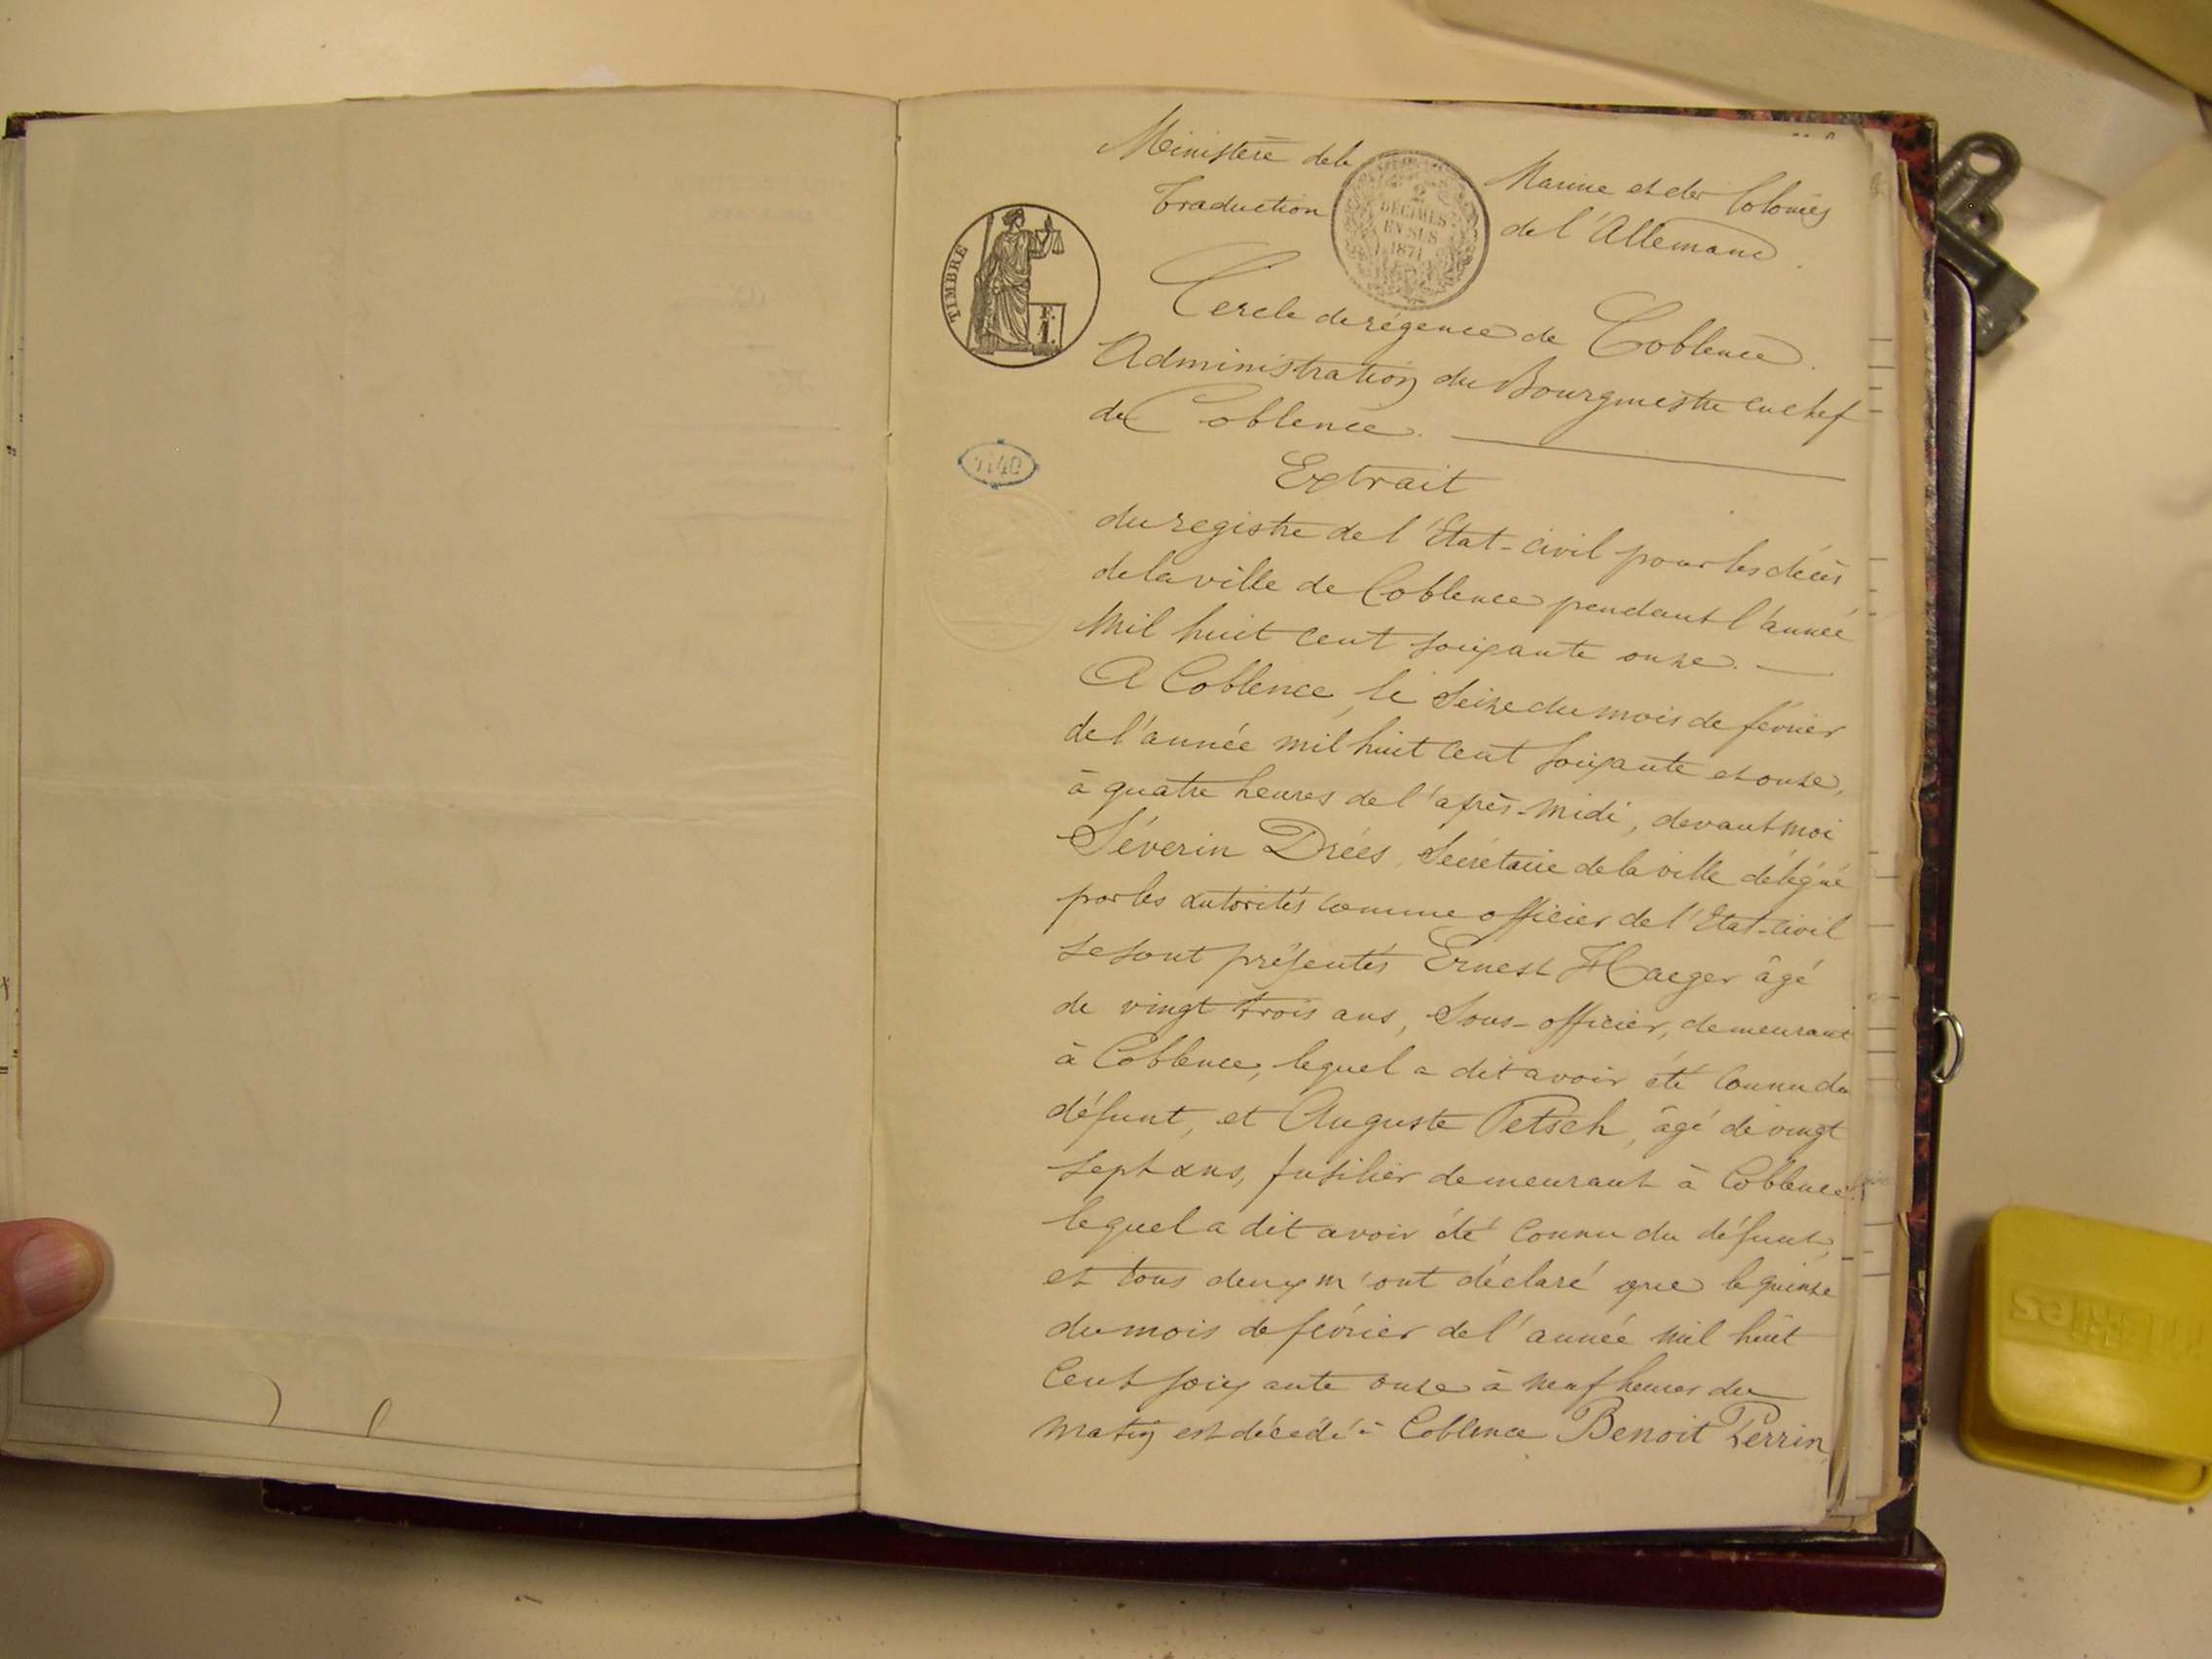 Ministère de la Marine et des Colonies
Traduction de l'Allemand.
2
DÉCIMES
EN SUS
1871
TIMBRE
F.
1.
Cercle de régence de Coblence.
Administration du Bourgmestre en chef
de Coblence.
4140
Extrait
du registre de l'Etat-civil pour les décès
de la ville de Coblence pendant l'année
mil huit cent soixante onze. —
A Coblence, le seize du mois de février
de l'année mil huit cent soixante et onze,
à quatre heures de l'après-midi, devant moi
Séverin Drées, Secrétaire de la ville délégué
par les autorités comme officier de l'Etat-civil
se sont présentés Ernest Haeger âgé
de vingt trois ans, Sous-officier, demeurant
à Coblence, lequel a dit avoir été connu du
défunt, et Auguste Petsch, âgé de vingt
sept ans, fusilier demeurant à Coblence
lequel a dit avoir été connu du défunt,
et tous deux m'ont déclaré que le quinze
du mois de février de l'année mil huit
cent soixante onze à neuf heures du
matin est décédé à Coblence Benoit Perrin,